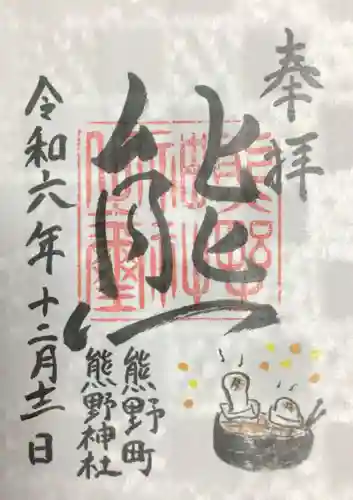 奉拝
熊
熊野町
熊野神社
令和六年十二月十二日